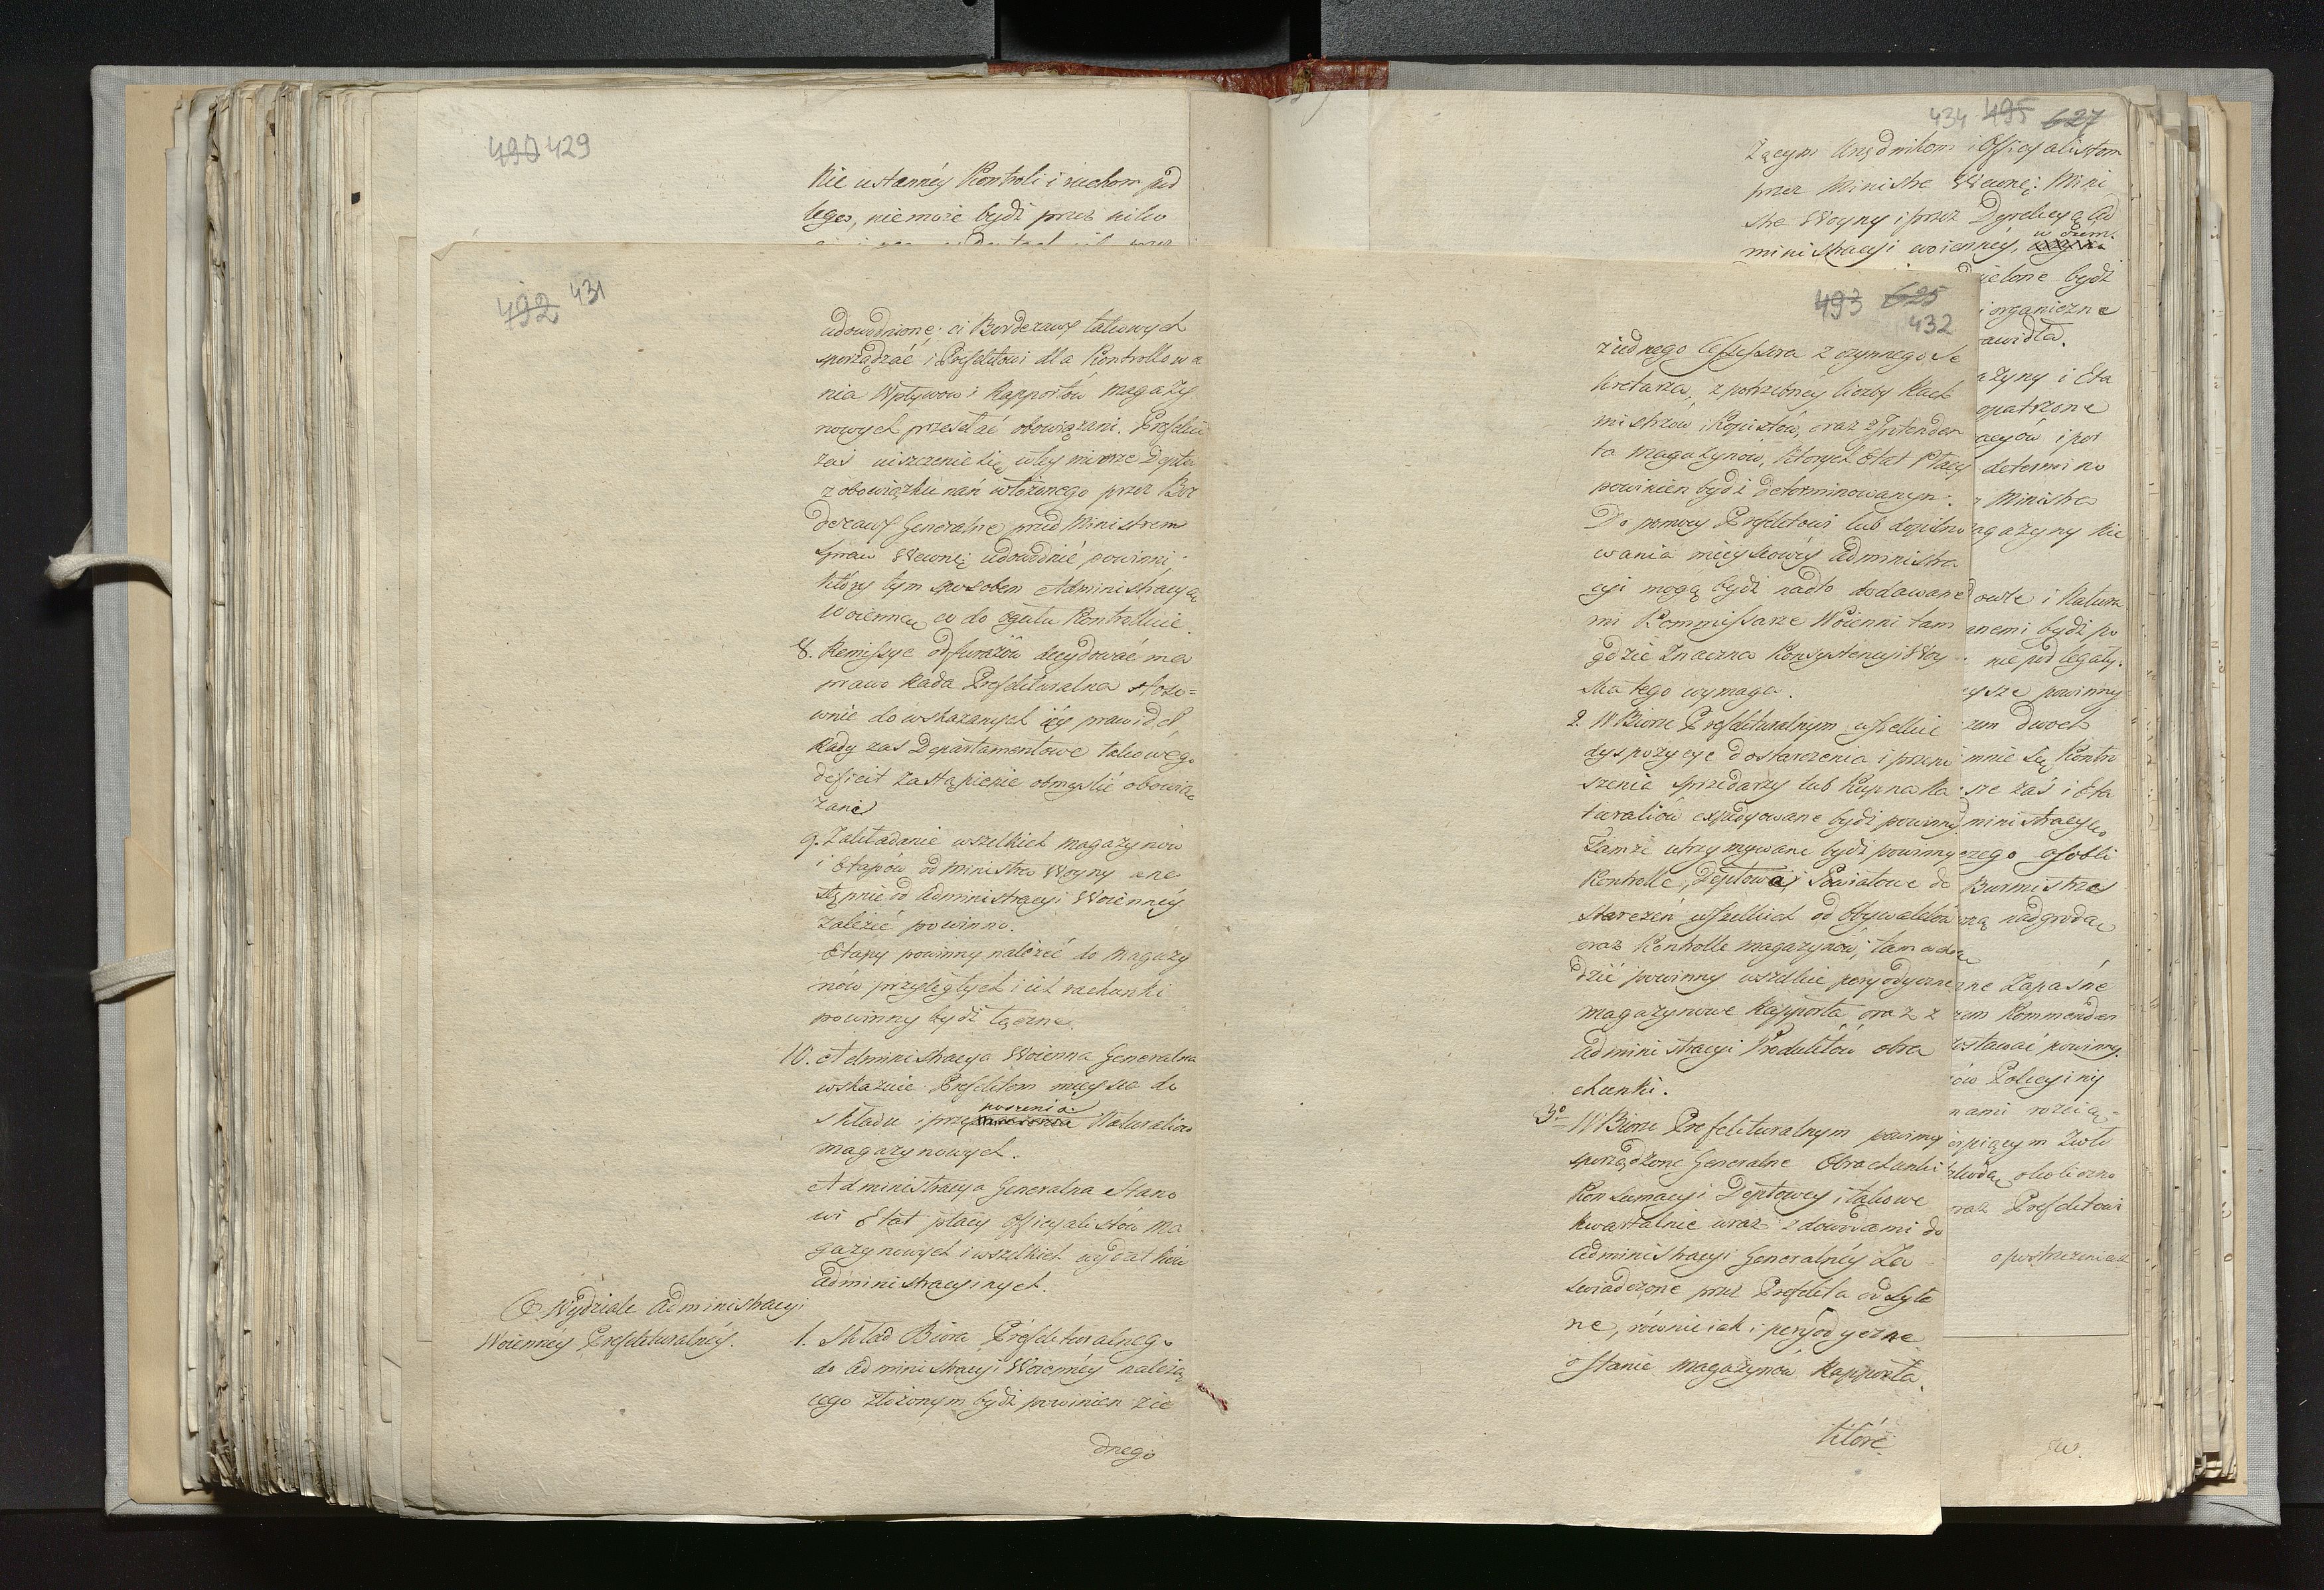 490 429
Nie ustannéy Kontroli i ruchom pod
legać, nie może bydź przez kilko
492 431
udowodnione; ci Borderawy takowych
sporządzać i Prefektowi dla Kontrollowa
nia Wpływow i Rapportów magazy
nowych przesłać obowiązani. Prefekci
zaś uiszczenie się w tey mierze Depta
z obowiązku nań włożonego przez Bor
derawy Generalne przed Ministrem
Spraw Wewnę: udowodnić powinni;
który tym sposobem Administracyą
Woienną co do ogułu Kontrolluie.
8. Remissye od furażów decydować ma
prawo Rada Prefekturalna stoso=
wnie do wskazanych iéy prawideł,
Rady zas Departamentowe takowego
deficit zastąpienie obmyślić obowią
zane
9. Zakładanie wszelkich magazynów
i Etapów od Ministra Woyny a na
stępnie od Administracyi Woiennéy
zależeć powinno.
Etapy powinny należeć do magazy
nów przyległych i ich rachunki
powinny bydź łączne.
10. Administracya Woienna Generalna
wskazuie Prefektom mieysca do
noszenia
składu i prze Naturaliów
magazynowych.
Administracya Generalna stano
wi Etat płacy Officyalistów Ma
gazynowych i wszelkich wydatków
administracyinych.
O Wydziale Administracyi
Woiennéy Prefekturalnéy.
1. Skład Biora Prefekturalnego
do Administracyi Woiennéy należą
cego złożonym bydź powinien z ie
dnego
493 625
432
z iednego Assessora z czynnego Se
kretarza, z potrzebney liczby Rach
mistrzów i Kopistów, oraz z Intenden
ta magazynów, których Etat Płacy
powinien bydź determinowanym.
Do pomocy Prefektowi lub dopilno
wania mieyscowéy administra
cyi mogą bydź nadto dodawane
mi Kommissarze Woienni tam
gdzie znaczna Konsystencyi Woy
ska tego wymaga.
2. W Biorze Prefekturalnym wszelkie
dyspozycye dostarczenia i przeno
szenia sprzedarzy lub Kupna Na
turaliów expedyowane bydź powinny
Tamże utrzymywane bydź powinny
Kontrolle, Deptowa i Powiatowe do
starczeń wszelkich od Obywatelów
oraz Kontrolle magazynów; tam docho
dzić powinny wszelkie peryodyczne
magazynowe Rapporta oraz z
administracyi Produktów obra
chunki.
3o W Biorze Prefekturalnym powinny
sporządzone Generalne Obrachunki
Konsumacyi Deptowey i takowe
kwartalnie wraz z dowodami do
administracyi Generalnéy za
świadczone przez Prefekta odsyła
ne, równie iak i peryodyczne
o stanie magazynów Rapporta,
które
434 495 627
żącym Urzędnikom i Officyalistom
przez Ministra Wewnę: Mini
stra Woyny i przez Dyrekcyą Ad
ministracyi woiennéy,
dzielone bydź
i organiczne
awidła.
azyny i Eta
opatrzone
acyów i por
determino
Ministra
agazyny nie
owe i Natura
anemi bydź po
nie podlegały.
eysze powinny
zem dwoch
mnie się Kontro
sze zaś i Eta
ministracyą
czego osobli
Burmistrze
czą nadgrodą
ne Zapasne
zem Kommendan
ostawać powinny.
ów Policyiny
nami rozcią=
erpiącym zwło
zkodą okoliczno
raz Prefektowi
o postrzeżeniach